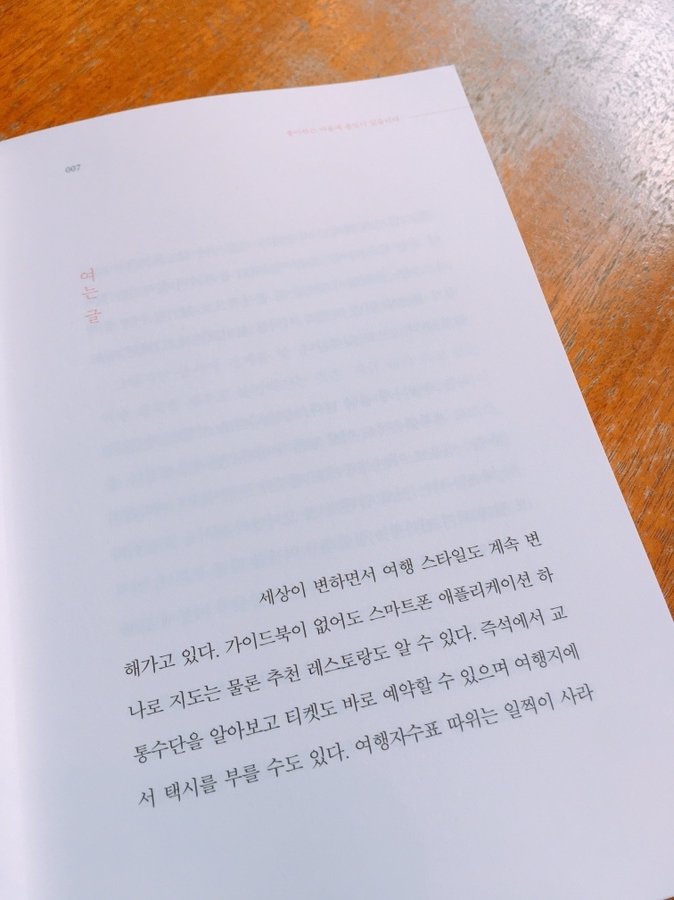 007
여는 글
세상이 변하면서 여행 스타일도 계속 변
해가고 있다. 가이드북이 없어도 스마트폰 애플리케이션 하
나로 지도는 물론 추천 레스토랑도 알 수 있다. 즉석에서 교
통수단을 알아보고 티켓도 바로 예약할 수 있으며 여행지에
서 택시를 부를 수도 있다. 여행자수표 따위는 일찍이 사라